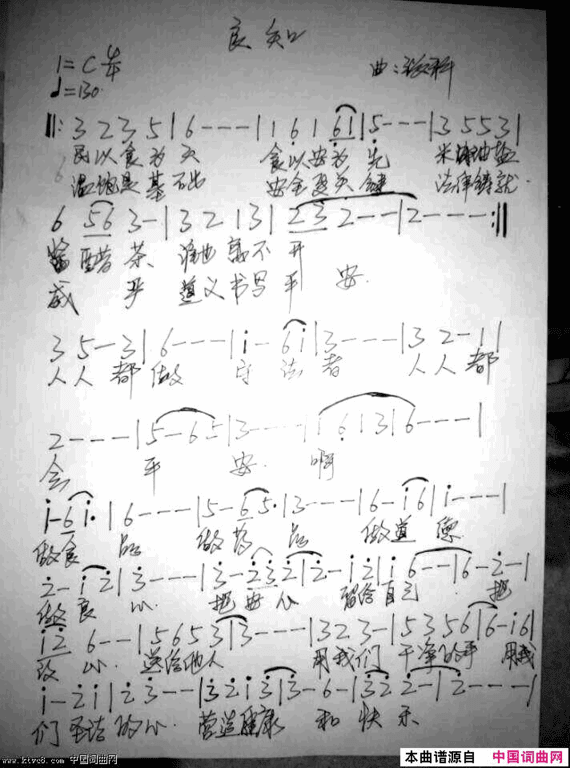 良知
1=C 4/4
♩=130
曲：
‖: 3 2 3 5 | 6 - - - | 1 6 1 61 | 5 - - - | 3 5 5 3 |
民以食为天 食以安为先 米 油盐
温饱是基石 安全是关键 法律铸就
6 56 3 - | 3 2 1 3 | 23 2 - - | 2 - - - :‖
酱醋茶 谁也离不开
威严 道义书写平安
3 5 - 3 | 6 - - - | i - 6i | 3 - - - | 3 2 - 1 |
人人都做 守法者 人人都
2 - - - | 5 - 6 5 | 3 - - - | 1 6 1 3 | 6 - - - |
会平安 啊
i - 6 i · | 6 - - - | 5 - 6 5 · | 3 - - - | 6 - i 6 | i - - - |
做食品 做药品 做道德
2 - i 2 | 3 - - - | 3 - 23 2 | 2 - i 2 | i 6 - - | 6 - 2 - |
做良心 把安心 留给自己 把
i2 6 - - | 5 6 5 3 | 3 - - - | 3 2 3 - | 5 3 5 6 | 6 - i 6 |
心 送给他人 用我们 干净的手 用我
i - 2 i | 2 3 - - | 3 2 i 3 | 3 - 6 - | 32 2 - | 2 - - - |
们 的心 营造健康 和快乐
www.ktvc8.com 中国词曲网
本曲谱源自 中国词曲网